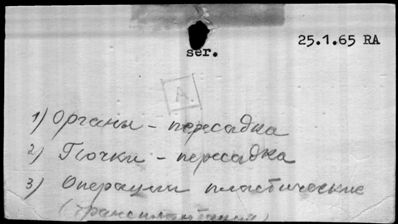 25.1.65 RA
ser.
A.
1) Органы - пересадка
2) Почки - пересадка
3) Операции пластические
(трансплантация)